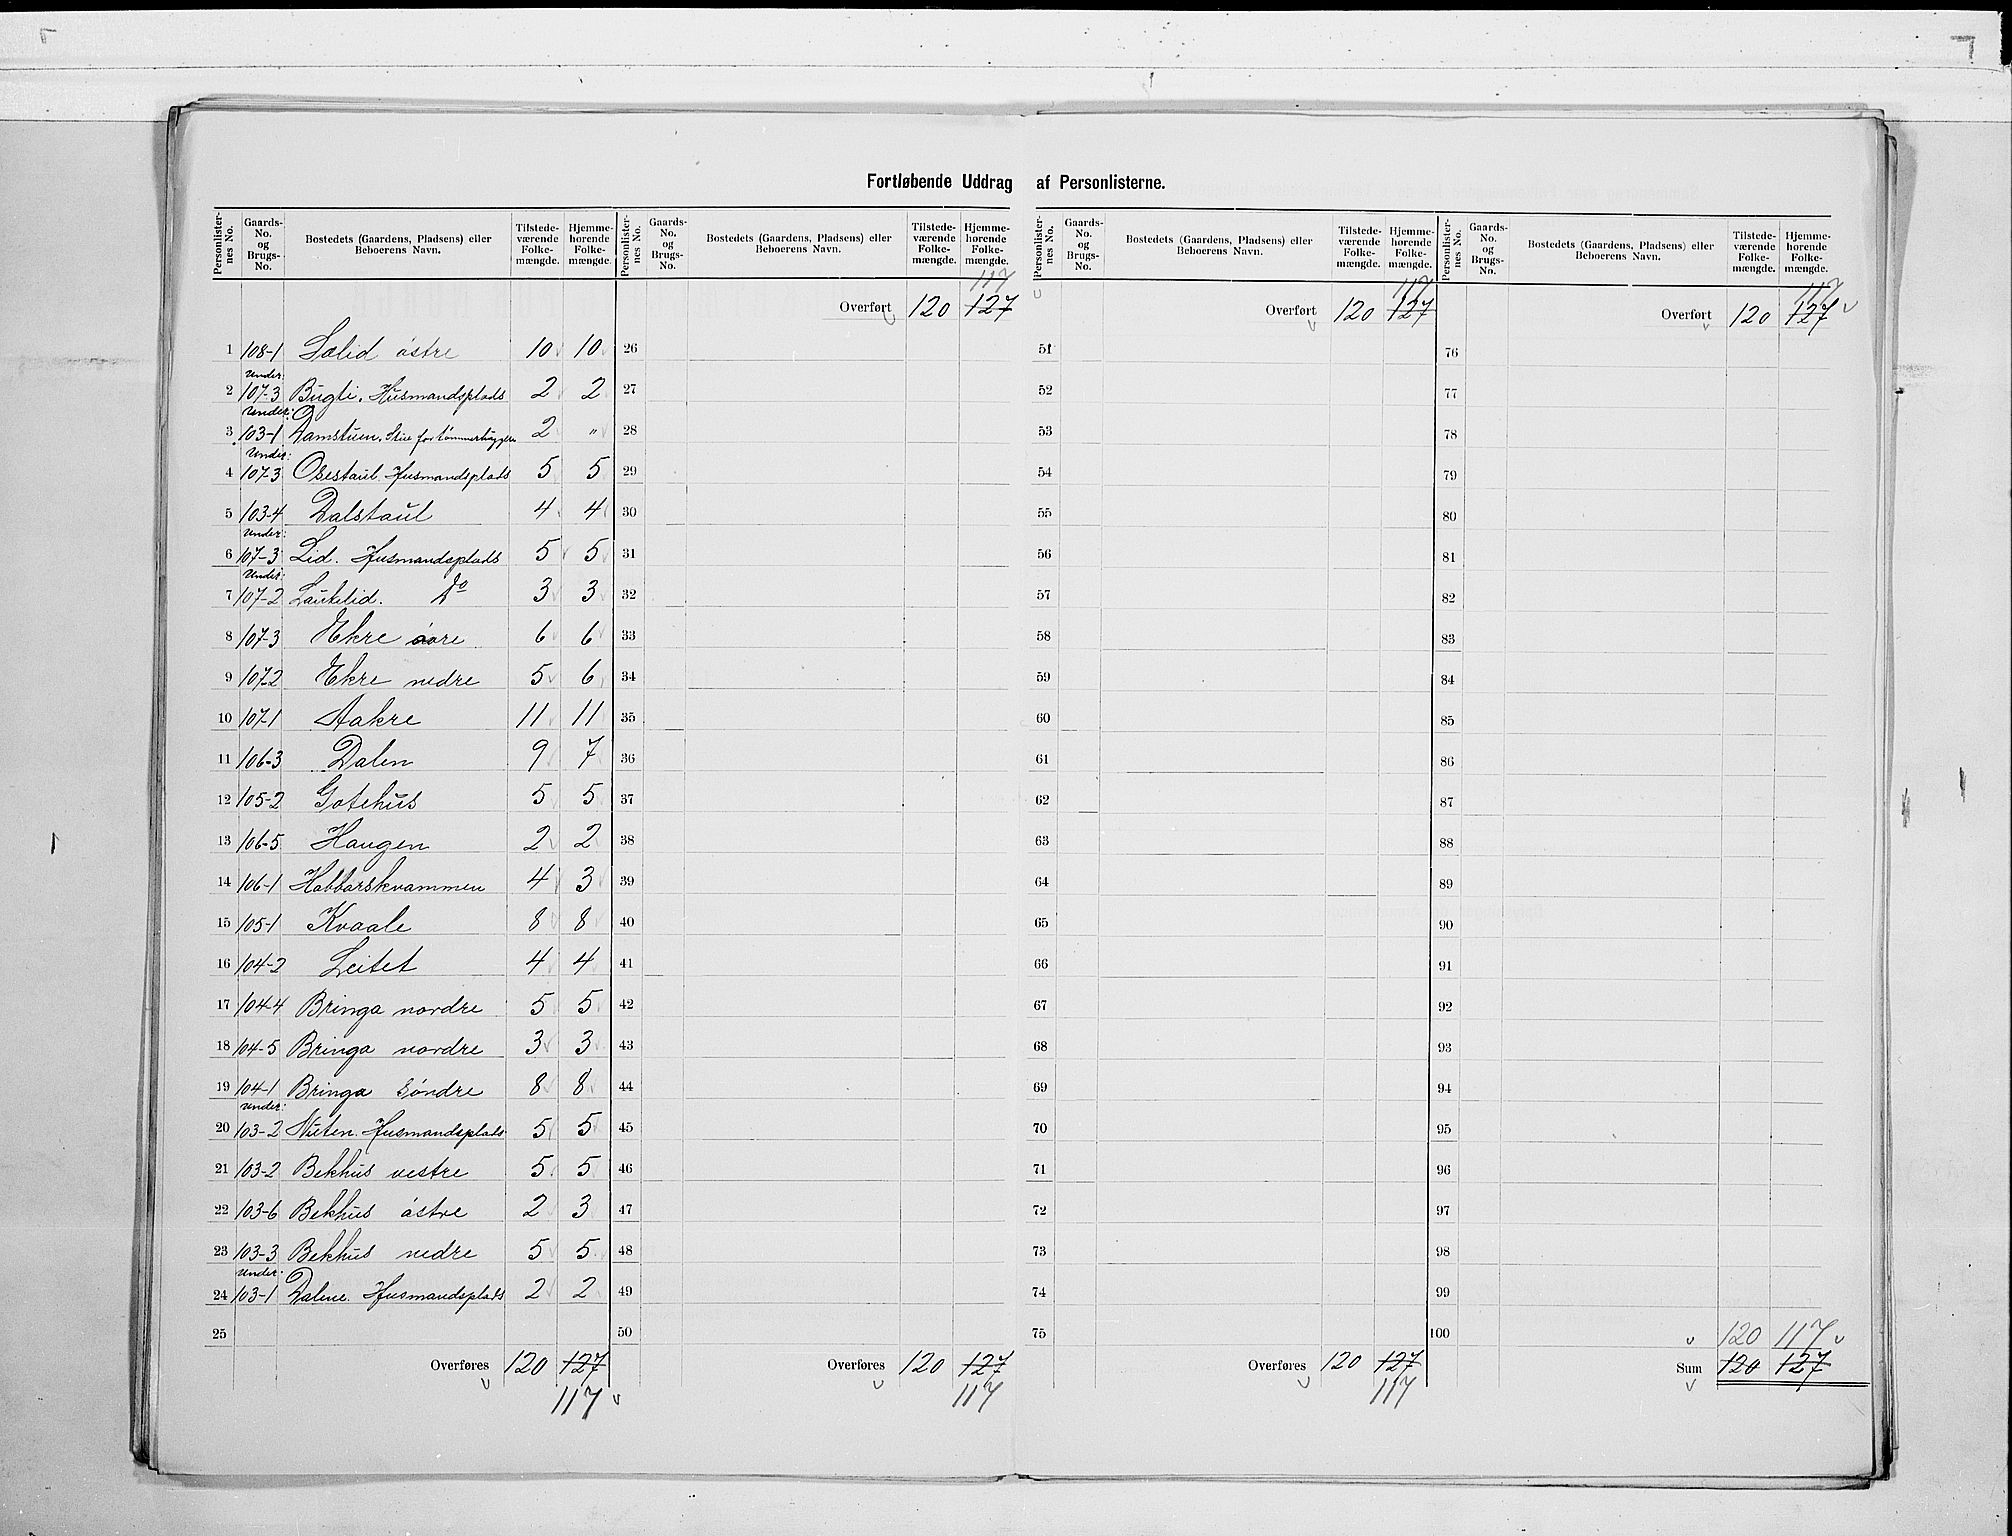 Fortløbende Uddrag af Personlisterne.
Personlister-nes No. Gaards-No. og Brugs-No. Bostedets (Gaardens, Pladsens) eller Beboerens Navn. Tilstede-værende Folke-mængde. Hjemme-hørende Folke-mængde.
1 108-1 Lølid östre 10 10
2 Under: 107-3 Bugti. Husmandsplads 2 2
3 Under: 103-1 Damstuen. Stue for tømmerhuggere 2 "
4 Under: 107-3 Osestaul. Husmandsplads 5 5
5 103-4 Dalstaul 4 4
6 Under: 107-3 Lid. Husmandsplads 5 5
7 Under: 107-2 Laukelid. do 3 3
8 107-3 Ekre övre 6 6
9 107-2 Ekre nedre 5 6
10 107-1 Aakre 11 11
11 106-3 Dalen 9 7
12 105-2 Gotehus 5 5
13 106-5 Haugen 2 2
14 106-1 Habbarskvammen 4 3
15 105-1 Kvaale 8 8
16 104-2 Leitet 4 4
17 104-4 Bringa nordre 5 5
18 104-5 Bringa nordre 3 3
19 104-1 Bringa söndre 8 8
20 Under: 103-2 Nuten. Husmandsplads 5 5
21 103-2 Bekhus vestre 5 5
22 103-6 Bekhus östre 2 3
23 103-3 Bekhus nedre 5 5
24 Under: 103-1 Dalene. Husmandsplads 2 2
25
Overføres 120 127
117
Personlister-nes No. Gaards-No. og Brugs-No. Bostedets (Gaardens, Pladsens) eller Beboerens Navn. Tilstede-værende Folke-mængde. Hjemme-hørende Folke-mængde.
117
Overført 120 127
26
27
28
29
30
31
32
33
34
35
36
37
38
39
40
41
42
43
44
45
46
47
48
49
50
Overføres 120 127
117
Personlister-nes No. Gaards-No. og Brugs-No. Bostedets (Gaardens, Pladsens) eller Beboerens Navn. Tilstede-værende Folke-mængde. Hjemme-hørende Folke-mængde.
117
Overført 120 127
51
52
53
54
55
56
57
58
59
60
61
62
63
64
65
66
67
68
69
70
71
72
73
74
75
Overføres 120 127
117
Personlister-nes No. Gaards-No. og Brugs-No. Bostedets (Gaardens, Pladsens) eller Beboerens Navn. Tilstede-værende Folke-mængde. Hjemme-hørende Folke-mængde.
117
Overført 120 127
76
77
78
79
80
81
82
83
84
85
86
87
88
89
90
91
92
93
94
95
96
97
98
99
100
120 117
Sum 120 127